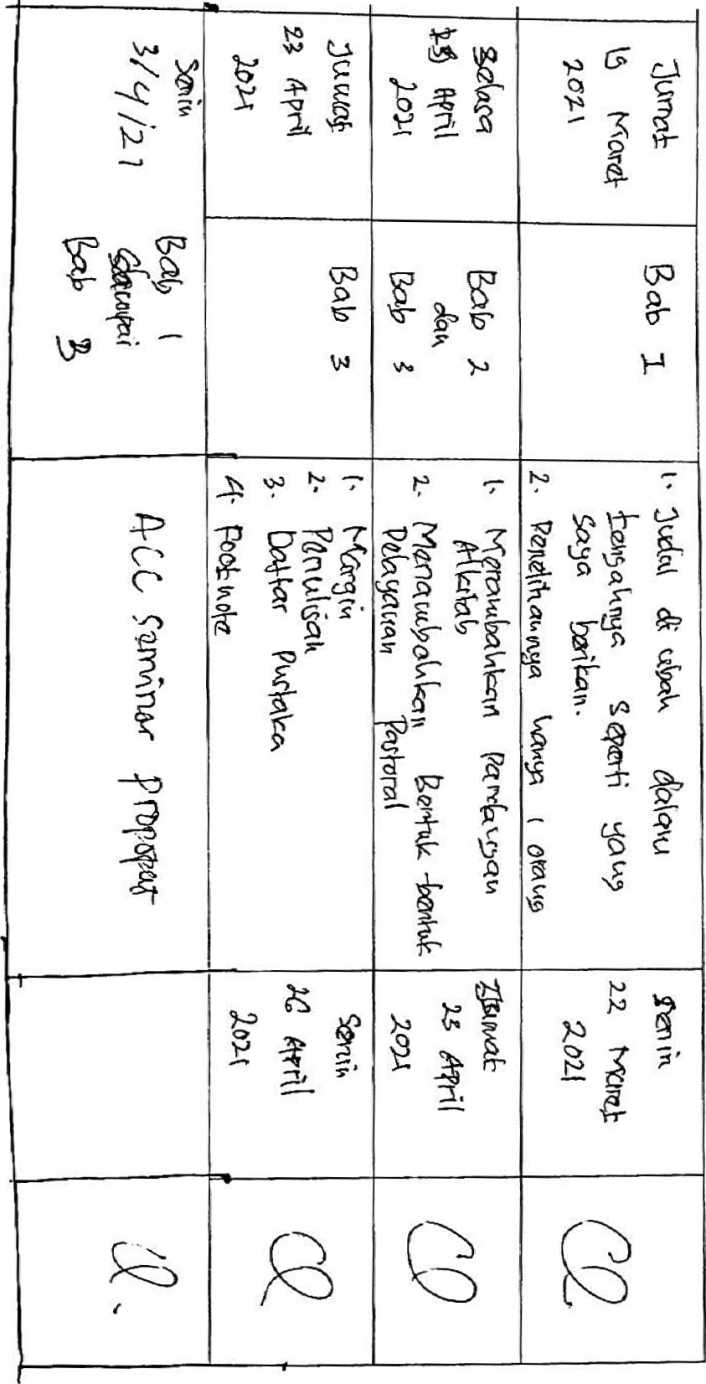 Jumat
19 Maret
2021
Bab I
1. Judul di ubah dalam
tengahnya seperti yang
saya berikan.
2. Penelitiannya hanya 1 orang
Senin
22 Maret
2021
Selasa
April
2021
Bab 2
dan
Bab 3
1. Menambahkan Pandangan
Alkitab
2. Menambahkan Bentuk-bentuk
Pelayanan Pastoral
Jumat
23 April
2021
Jumat
23 April
2021
Bab 3
1. Margin
2. Penulisan
3. Daftar Pustaka
4. Footnote
Senin
26 April
2021
Senin
3/4/21
Bab 1
sampai
Bab 3
ACC Seminar Proposal